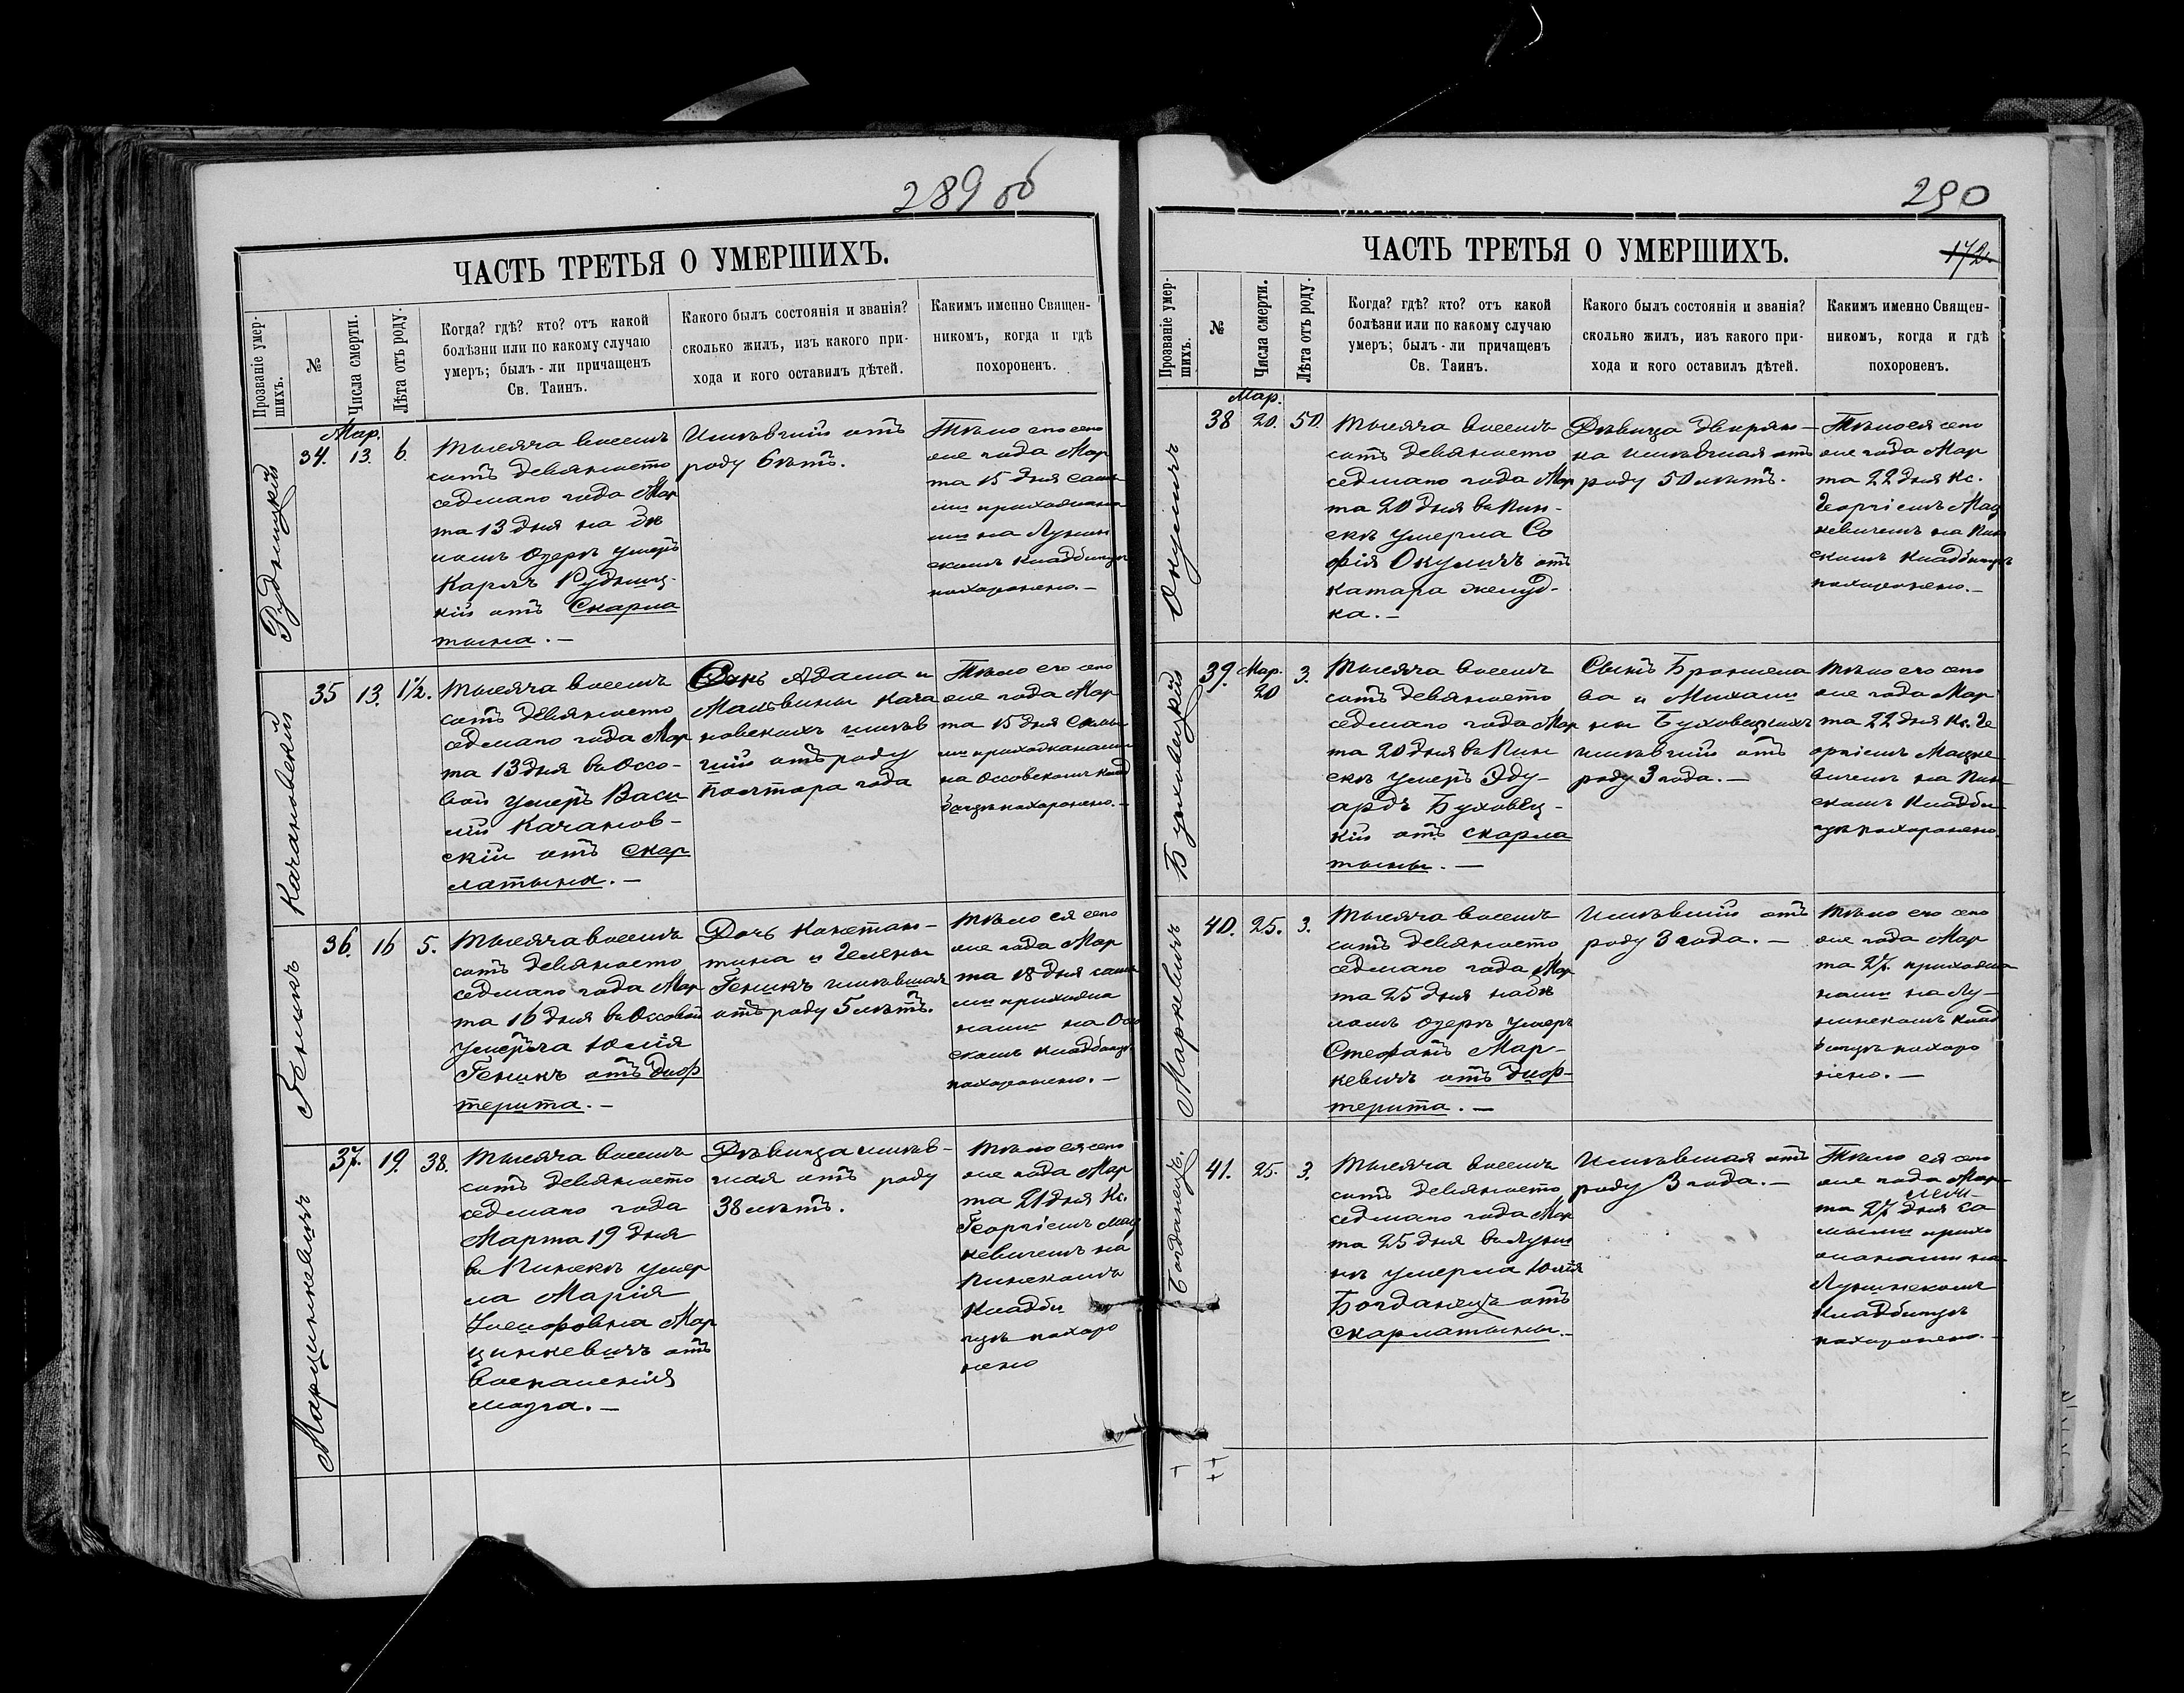 289 об
ЧАСТЬ ТРЕТЬЯ О УМЕРШИХЪ.
Прозваніе умер-
шихъ.
№
Числа смерти.
Лѣта отъ роду.
Когда? гдѣ? кто? отъ какой
болѣзни или по какому случаю
умеръ; былъ-ли причащенъ
Св. Таинъ.
Какого былъ состоянія и званія?
сколько жилъ, изъ какого при-
хода и кого оставилъ дѣтей.
Какимъ именно Священ-
никомъ, когда и гдѣ
похороненъ.
Рудницкій
34.
Мар.
13.
6
Тысяча восемь
сотъ девяносто
седмаго года Мар
та 13 дня на Бѣ
ломъ озерѣ умеръ
Карлъ Рудниц-
кій отъ Скарла
тына. —
Имѣвшій отъ
роду 6 лѣтъ.
Тѣло его сего
же года Мар
та 15 дня самы
ми прихожана
ми на Лунин
скомъ кладбищѣ
похоронено. —
Качановскій
35
13.
1½.
Тысяча восемь
сотъ девяносто
седмаго года Мар
та 13 дня въ Оссо-
вой умеръ Васи
лій Качанов-
скій отъ скар
латына. —
Сынъ Адама и
Мальвины Кача
новскихъ имѣв
шій отъ роду
полтора года
Тѣло его сего
же года Мар
та 15 дня самы
ми прихожанами
на Оссовскомъ клад
бищѣ похоронено. —
Геникъ
36.
16
5.
Тысяча восемь
сотъ девяносто
седмаго года Мар
та 16 дня въ Оссовой
умерла Юлія
Геникъ отъ диф
терита. —
Дочь Констан-
тина и Гелены
Геникъ имѣвшая
отъ роду 5 лѣтъ.
Тѣло ея сего
же года Мар
та 18 дня самы
ми прихожа
нами на Осо
скомъ кладбищѣ
похоронено. —
Марцинкевичъ
37.
19.
38.
Тысяча восемь
сотъ девяносто
седмаго года
Марта 19 дня
въ Пинскѣ умер
ла Марія
Марцинкевичъ отъ
воспаленія
мозга. —
Дѣвица имѣв-
шая отъ роду
38 лѣтъ.
Тѣло ея сего
же года Мар
та 21 дня Кс.
Георгіемъ Мац
кевичемъ на
Пинскомъ
кладби
щѣ похоро
нено
290
ЧАСТЬ ТРЕТЬЯ О УМЕРШИХЪ.
172.
Прозваніе умер-
шихъ.
№
Числа смерти.
Лѣта отъ роду.
Когда? гдѣ? кто? отъ какой
болѣзни или по какому случаю
умеръ; былъ-ли причащенъ
Св. Таинъ.
Какого былъ состоянія и званія?
сколько жилъ, изъ какого при-
хода и кого оставилъ дѣтей.
Какимъ именно Священ-
никомъ, когда и гдѣ
похороненъ.
Окуличъ
38
Мар.
20.
50
Тысяча восемь
сотъ девяносто
седмаго года Мар
та 20 дня въ Пин-
скѣ умерла Со
фія Окуличъ отъ
катара желуд-
ка. —
Дѣвица дворян-
ка имѣвшая отъ
роду 50 лѣтъ.
Тѣло ея сего
же года Мар
та 22 дня Кс.
Георгіемъ Мац
кевичемъ на Пин
скомъ кладбищѣ
похоронено. —
Буховецкій
39.
Мар.
20
3.
Тысяча восемь
сотъ девяносто
седмаго года Мар
та 20 дня въ Пин
скѣ умеръ Эду-
ардъ Буховец-
кій отъ скарла
тыны. —
Сынъ Бронисла
ва и Михали
ны Буховецкихъ
имѣвшій отъ
роду 3 года. —
Тѣло его сего
же года Мар
та 22 дня Кс. Ге
оргіемъ Мацке
вичемъ на Пин
скомъ кладби
щѣ похоронено.
Маркевичъ
40.
25.
3.
Тысяча восемь
сотъ девяносто
седмаго года Мар
та 25 дня на Бѣ
ломъ озерѣ умеръ
Стефанъ Мар-
кевичъ отъ диф-
терита. —
Имѣвшій отъ
роду 3 года. —
Тѣло его сего
же года Мар
та 27. прихожа
нами на Лу-
нинскомъ клад
бищѣ похоро
нено. —
Богданецъ.
41.
25.
3.
Тысяча восемь
сотъ девяносто
седмаго года Мар
та 25 дня въ Луни
нѣ умерла Юлія
Богданецъ отъ
скарлатыны. —
Имѣвшая отъ
роду 3 года. —
Тѣло ея сего
же года Мар-
та 27 дня са
мыми прихо
жанами на
Лунинскомъ
кладбищѣ
похоронено. —